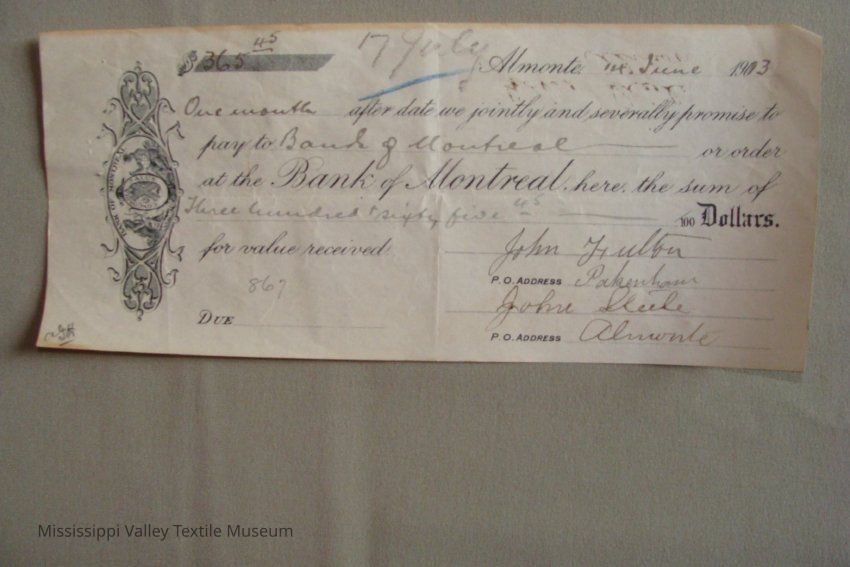 $365 45
17 July
Almonte, 14 June 1903
One month after date we jointly and severally promise to
pay to Bank of Montreal or order
at the Bank of Montreal, here, the sum of
Three hundred + sixty five 45 100 Dollars.
for value received
John Fulton
P.O. ADDRESS Pakenham
867
John Steele
DUE
P.O. ADDRESS Almonte
BANK OF MONTREAL
Mississippi Valley Textile Museum